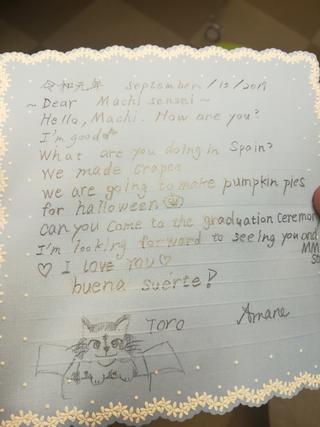 令和元年 September/13/2019
~Dear Machi sensei~
Hello, Machi. How are you?
I'm good
What are you doing in Spain?
We made crapes
we are going to make pumpkin pies
for halloween
can you come to the graduation ceremor
I'm looking forward to seeing you and
MM
♡ I Love you ♡
buena suérte!
TORO
Amane